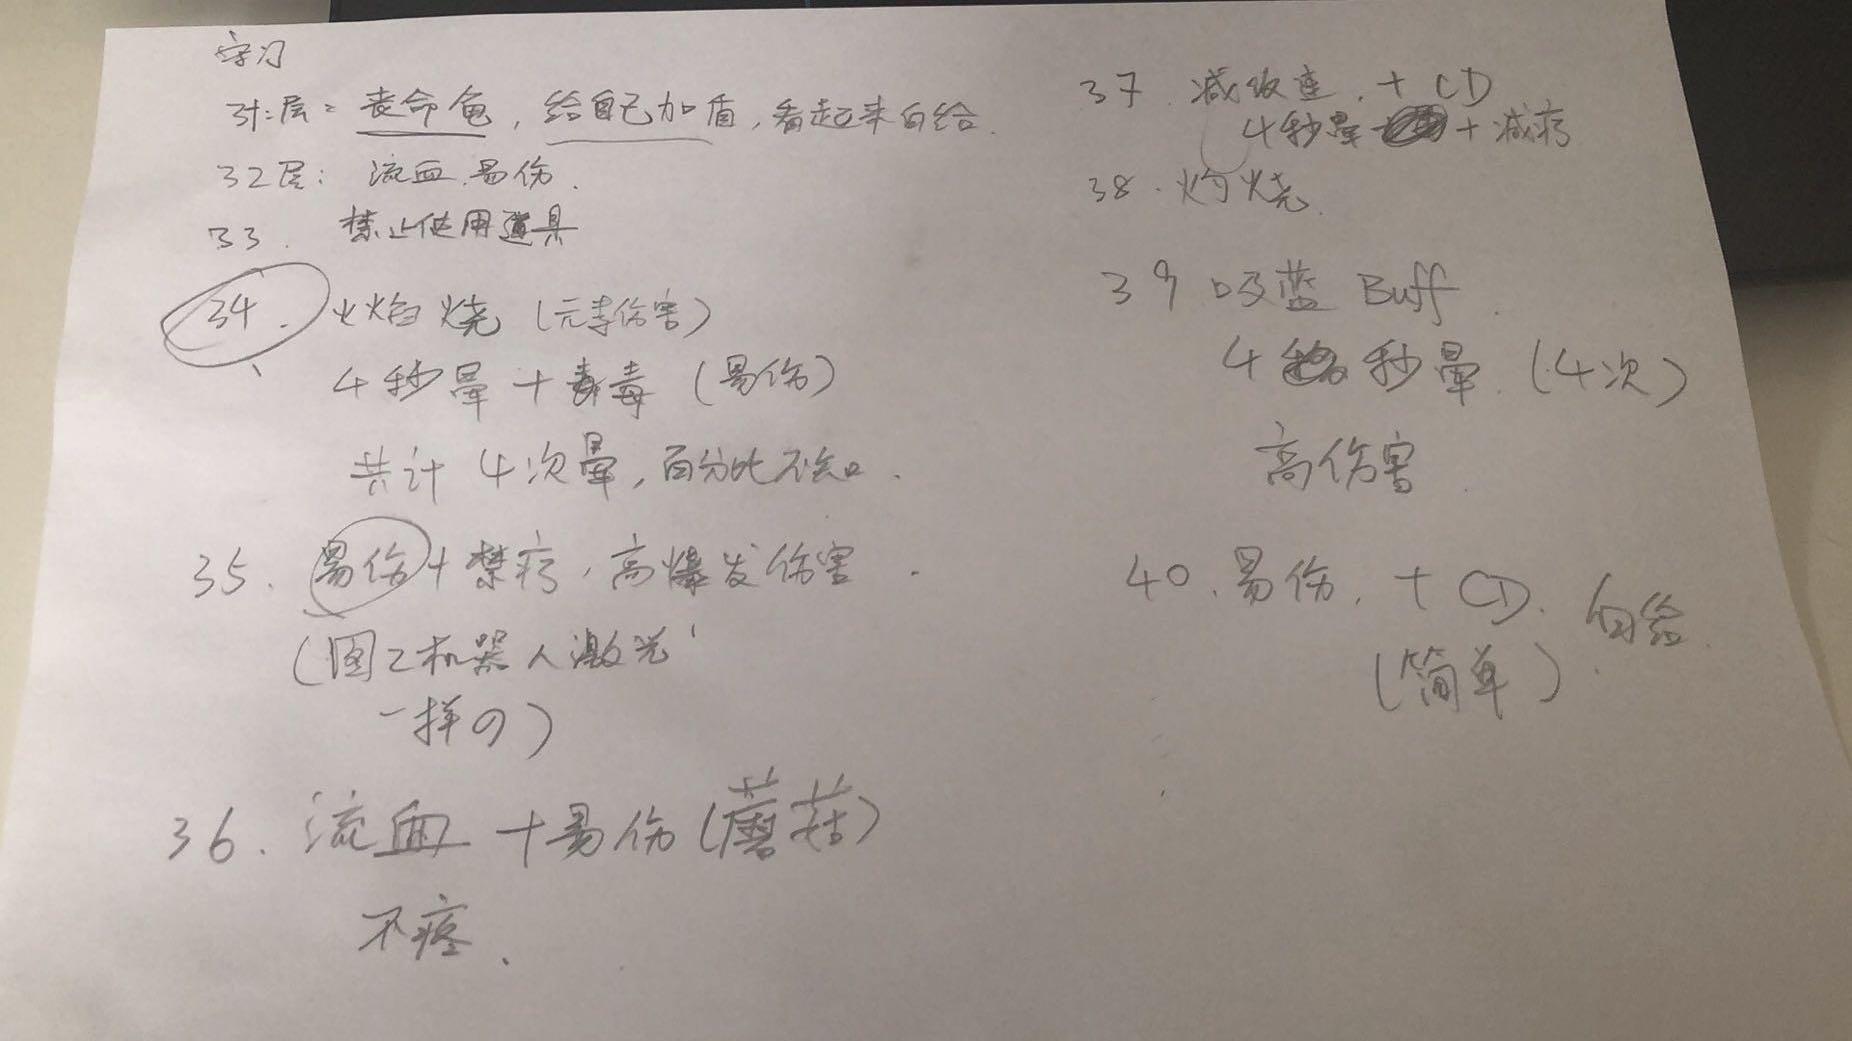 学习
31层: 丧命龟, 给自己加盾, 看起来白给.
32层: 流血.易伤.
33. 禁止使用道具
34. 火焰烧 (元素伤害)
4秒晕+毒 (易伤)
共计 4次晕, 百分比不知.
35. 易伤+禁疗, 高爆发伤害.
(图2机器人激光
一样の)
36. 流血+易伤(蘑菇)
不疼.
37. 减攻速.+CD
4秒晕+减疗
38. 灼烧.
39 吸蓝 Buff.
4秒晕.(4次)
高伤害.
40.易伤.+CD. 白给.
(简单).